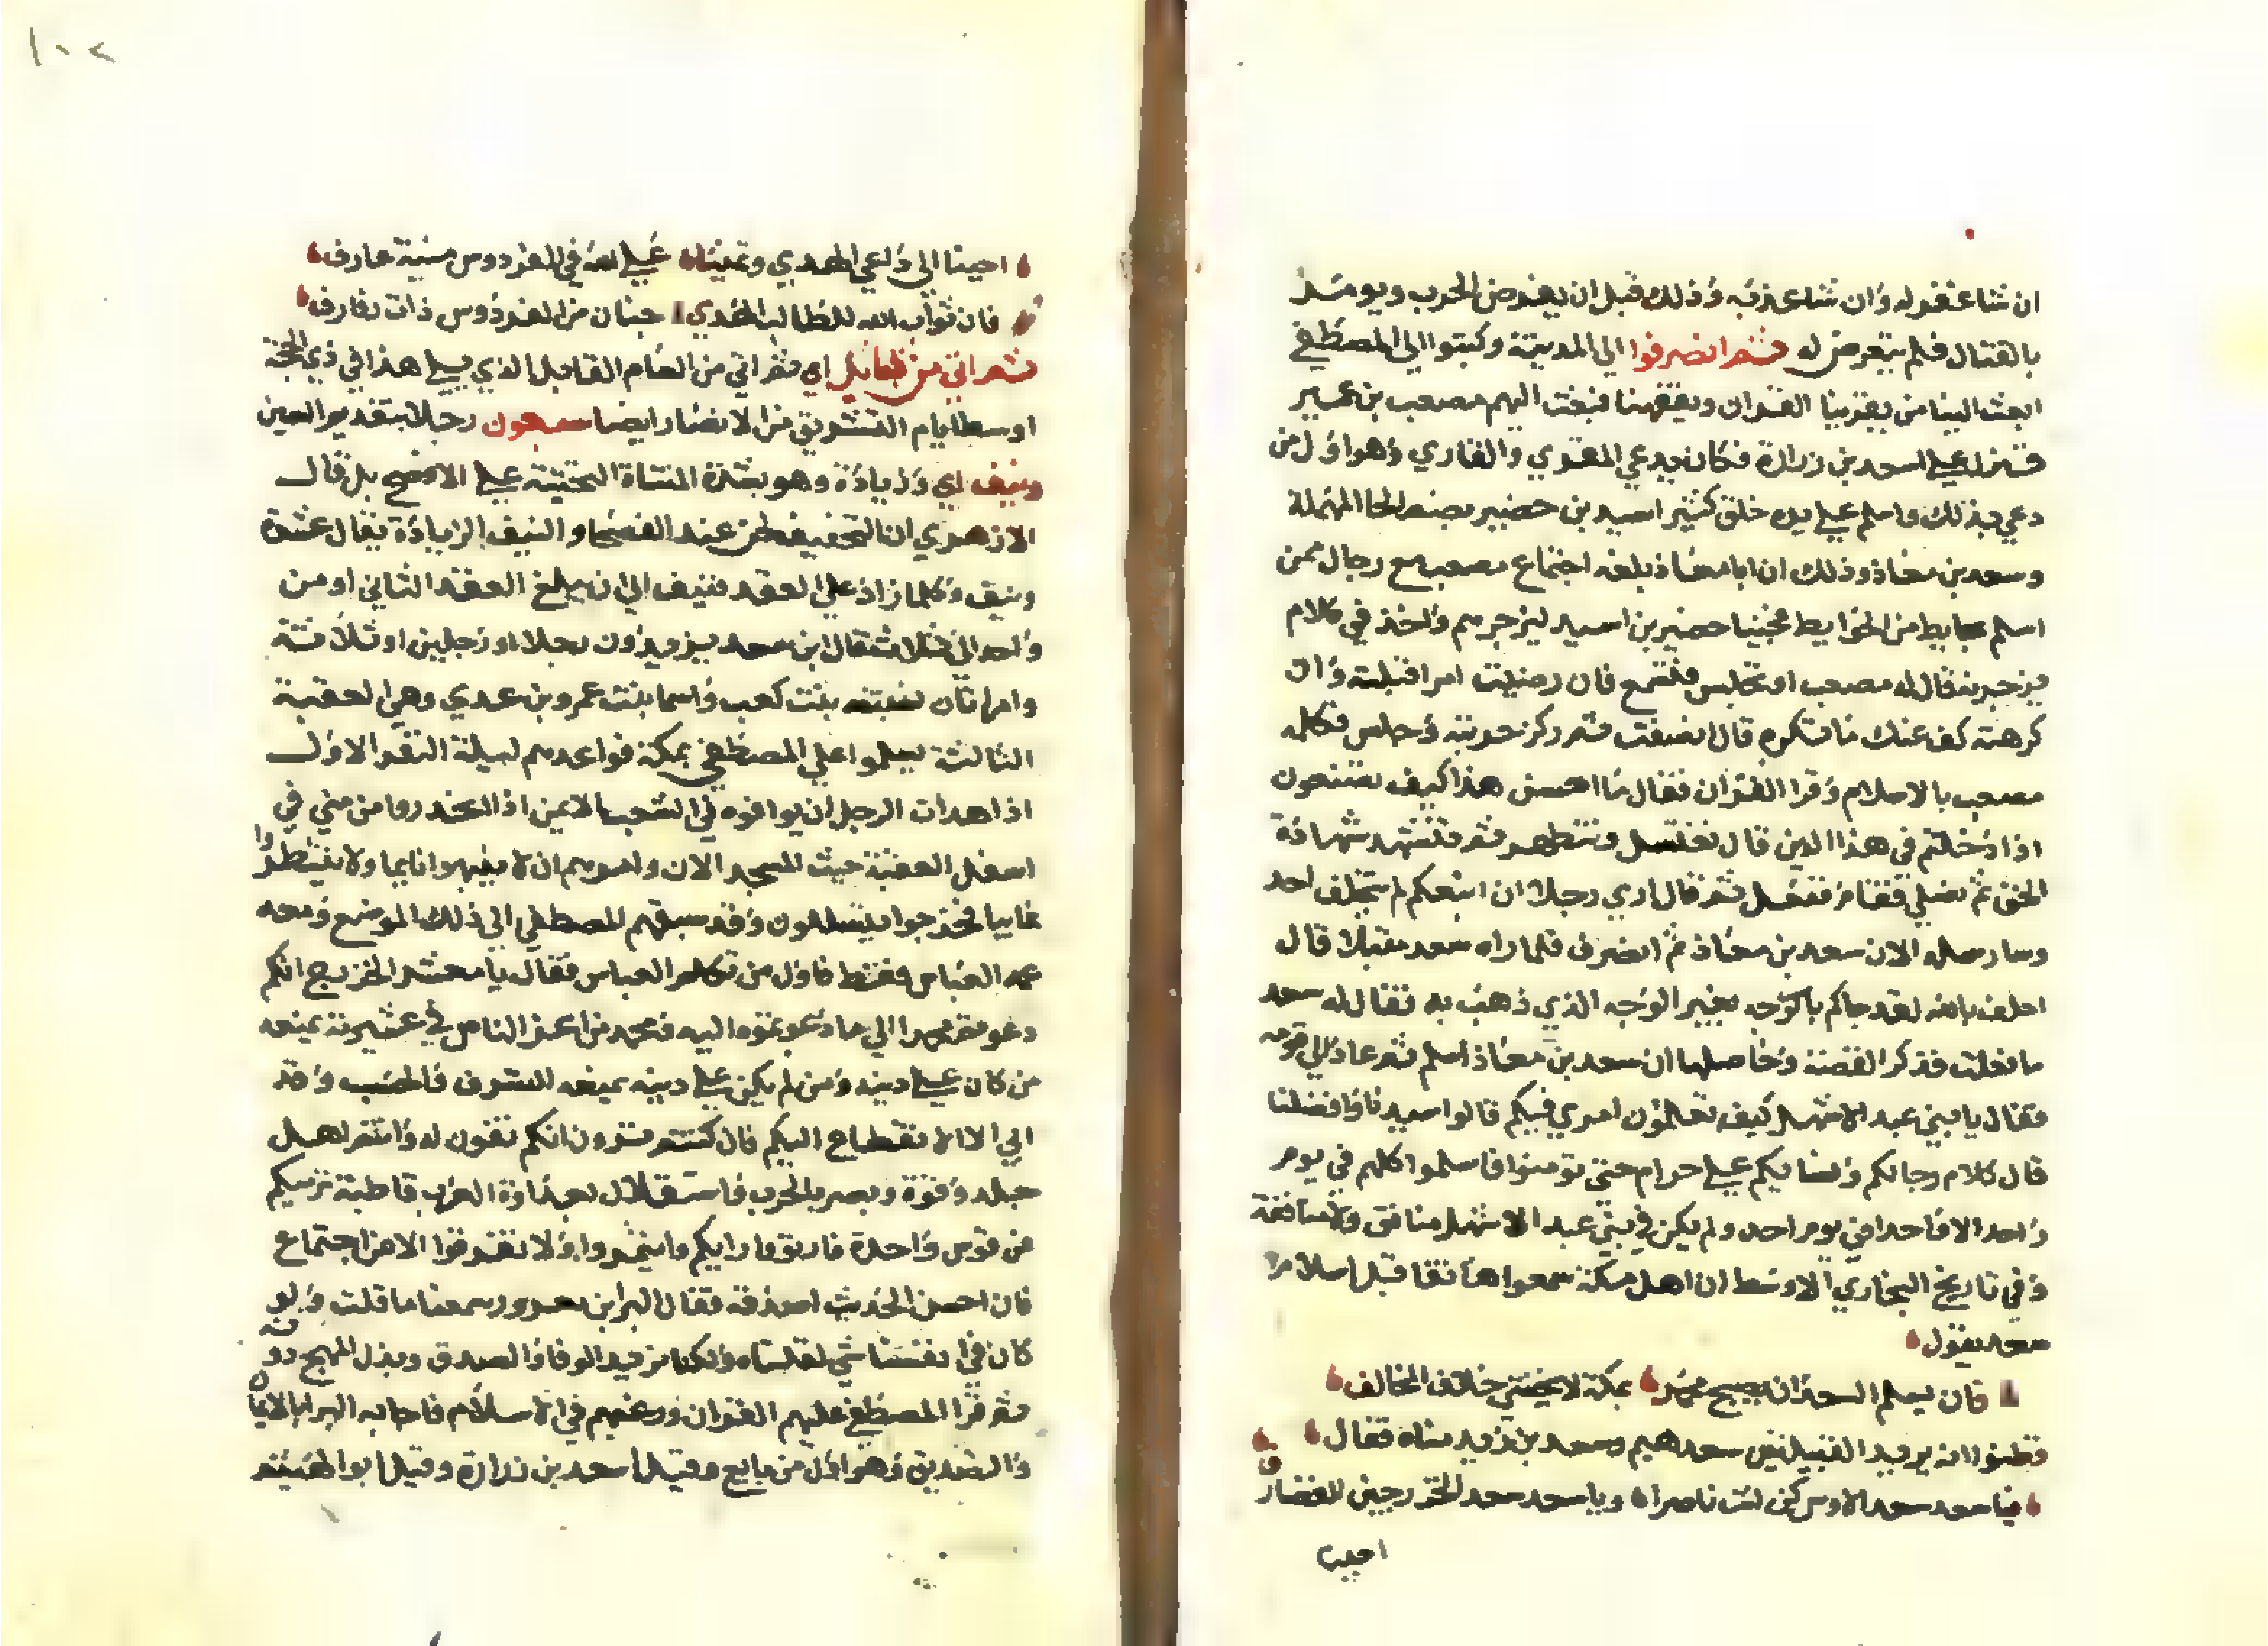 ان شا غفر له وان شا عذبه وذلك قبل ان يفرض الحرب ويومئذ
بالقتال فلم يتعرض له ثم انصرفوا الي المدينة وكتبوا الي المصطفي
ابعث الينا من يقرينا القران ويفقهنا فبعث اليهم مصعب بن عمير
فنزل علي اسعد بن زرارة فكان يدعي المقري والقاري وهو اول من
دعي بذلك واسلم علي يده خلق كثير اسيد بن حضير بضم الحا المهملة
وسعد بن معاذ وذلك ان ابا معاذ بلغه اجتماع مصعب مع رجال ممن
اسلم بحايط من الحوايط فجينا حضير بن اسيد ليزجرهم واخذ في كلام
يزجره فقال له مصعب او تجلس فتسمع فان رضيت امرا قبلته وان
كرهته كف عنك ما تكره قال انصفت ثم ركز حربته وجلس فكلمه
مصعب بالاسلام وقرا القران فقال ما احسن هذا كيف تصنعون
اذا دخلتم في هذا الدين قال تغتسل وتتطهر ثم تتشهد شهادة
الحق ثم تصلي فقام ففعل ثم قال اري رجلا ان اتبعكم لم يتخلف احد
وسارسله الان سعد بن معاذ ثم انصرف فلما راه سعد مقبلا قال
احلف بالله لقد جاكم بالوجه بغير الوجه الذي ذهب به فقال له سعد
ما فعلت فذكر القصة وحاصلها ان سعد بن معاذ اسلم ثم عاد الي قومه
فقال يا بني عبد الاشهل كيف تعلمون امري فيكم قالوا سيدنا وافضلنا
قال كلام رجالكم ونسايكم علي حرام حتي تومنوا فاسلموا كلهم في يوم
واحد الا واحدا في يوم احد ولم يكن في بني عبد الاشهل منافق ولا منافقة
وفي تاريخ البخاري الاوسط ان اهل مكة سمعوا هاتفا قبل اسلام
سعد يقول
فان يسلم السعدان يصبح محمد بمكة لا يخشي خلاف المخالف
فظنوا انه يريد القبيلتين سعد هذيم وسعد بن زيد مناه فقال
فيا سعد سعد الاوس كن انت ناصرا ويا سعد سعد الخزرجين الغضار
ف
اجيبا
١٠٢
اجيبا الي داعي الهدي وتمنيا علي الله في الفردوس منية عارف
فان ثواب الله للطالب الهدي جنان من الفردوس ذات رفارف
ثم اتي من قابل اي ثم اتي من العام القابل الذي يلي هذا في ذي الحجة
اوسط ايام التشريق من الانصار ايضا سبعون رجلا بتقديم السين
ونيف اي وزيادة وهو بشدة المثناة التحتية علي الافصح بل قال
الازهري ان التخفيف لحن عند الفصحا والنيف الزيادة يقال عشرة
ونيف وكلما زاد علي العقد فنيف الي ان يبلغ العقد الثاني او من
واحد الي ثلاث فقال ابن سعد يزيدون رجلا او رجلين او ثلاثة
وامراتان نسيبة بنت كعب واسما بنت عمرو بن عدي وهي العقبة
الثالثة يسلموا علي المصطفي بمكة فواعدهم ليلة النفر الاول
اذا هدات الرجل ان يوافوه في الشعب الايمن اذا انحدروا من مني في
اسفل العقبة حيث المسجد الان وامرهم ان لا ينبهوا نايما ولا ينتظروا
غايبا فخرجوا يتسللون وقد سبقهم المصطفي الي ذلك الموضع ومعه
عمه العباس فقط فاول من تكلم العباس فقال يا معشر الخزرج انكم
دعوتم محمدا الي ما دعوتموه اليه فمحمد من اعز الناس في عشيرته يمنعه
من كان علي دينه ومن لم يكن علي دينه يمنعه للشرف والحسب وقد
ابي الا الانقطاع اليكم فان كنتم ترون انكم تفون له وانتم اهل
جلد وقوة وبصر بالحرب واستقلال بعداوة العرب قاطبة ترميكم
عن قوس واحدة فاروتوا رايكم وايتمروا ولا تفترقوا الا عن اجتماع
فان احسن الحديث اصدقه فقال البرا بن معرور سمعنا ما قلت ولو
كان في انفسنا شي لقلناه ولكنا نريد الوفا والصدق وبذل المهج دونه
ثم قرا المصطفي عليهم القران ورغبهم في الاسلام فاجابه البرا بالايمان
والتصديق وهو اول من بايع وقيل اسعد بن زرارة وقيل ابو الهيثم